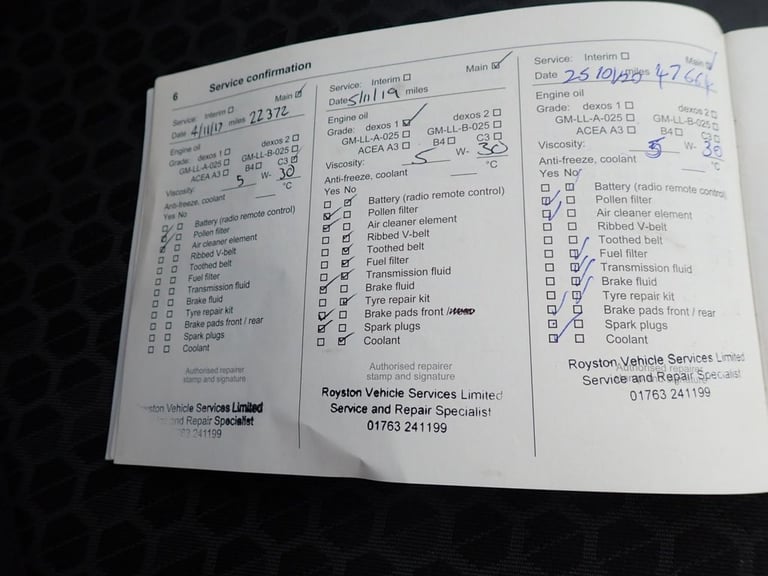 6 Service confirmation
Service: Interim Main
Date 4/11/17 miles 22372
Engine oil
Grade: dexos 1 dexos 2
GM-LL-A-025 GM-LL-B-025
ACEA A3 B4 C3
Viscosity: 5 W- 30
Anti-freeze, coolant °C
Yes No
Battery (radio remote control)
Pollen filter
Air cleaner element
Ribbed V-belt
Toothed belt
Fuel filter
Transmission fluid
Brake fluid
Tyre repair kit
Brake pads front / rear
Spark plugs
Coolant
Authorised repairer
stamp and signature
Royston Vehicle Services Limited
and Repair Specialist
241199
Service: Interim Main
Date 5/11/19 miles
Engine oil
Grade: dexos 1 dexos 2
GM-LL-A-025 GM-LL-B-025
ACEA A3 B4 C3
Viscosity: 5 W- 30
Anti-freeze, coolant °C
Yes No
Battery (radio remote control)
Pollen filter
Air cleaner element
Ribbed V-belt
Toothed belt
Fuel filter
Transmission fluid
Brake fluid
Tyre repair kit
Brake pads front /
Spark plugs
Coolant
Authorised repairer
stamp and signature
Royston Vehicle Services Limited
Service and Repair Specialist
01763 241199
Service: Interim Main
Date miles
Engine oil
Grade: dexos 1 dexos 2
GM-LL-A-025 GM-LL-B-025
ACEA A3 B4 C3
Viscosity: 5 W- 30
Anti-freeze, coolant °C
Yes No
Battery (radio remote control)
Pollen filter
Air cleaner element
Ribbed V-belt
Toothed belt
Fuel filter
Transmission fluid
Brake fluid
Tyre repair kit
Brake pads front / rear
Spark plugs
Coolant
Authorised repairer
Royston Vehicle Services Limited
Service and Repair Specialist
01763 241199